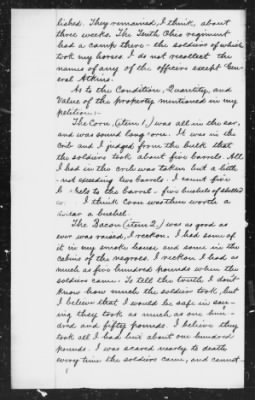 lished. They remained, I think, about
three weeks. The Tenth Ohio regiment
had a camp there - the soldiers of which
took my horses. I do not recollect the
names of any of the officers except Gen-
eral Atkins.
As to the Condition, Quantity, and
Value of the property mentioned in my
petition:-
The Corn, (item 1,) was all in the ear,
and was sound long-ore. It was in the
crib and I judged from the bulk that
the soldiers took about five barrels. All
I had in the crib was taken but a little
not exceeding two barrels. I count five
to the barrel - five bushels of shelled
I think corn was then worth a
dollar a bushel.
The Bacon (item 2,) was as good as
ever was raised, I reckon. I had some of
it in my smoke house and some in the
cabins of the negroes. I reckon I had as
much as five hundred pounds when the
soldiers came. To tell the truth I don't
know how much the soldiers took, but
I believe that I would be safe in say-
ing they took as much as one hun-
dred and fifty pounds. I believe they
took all I had but about one hundred
pounds. I was scared nearly to death
every time the soldiers came, and cannot